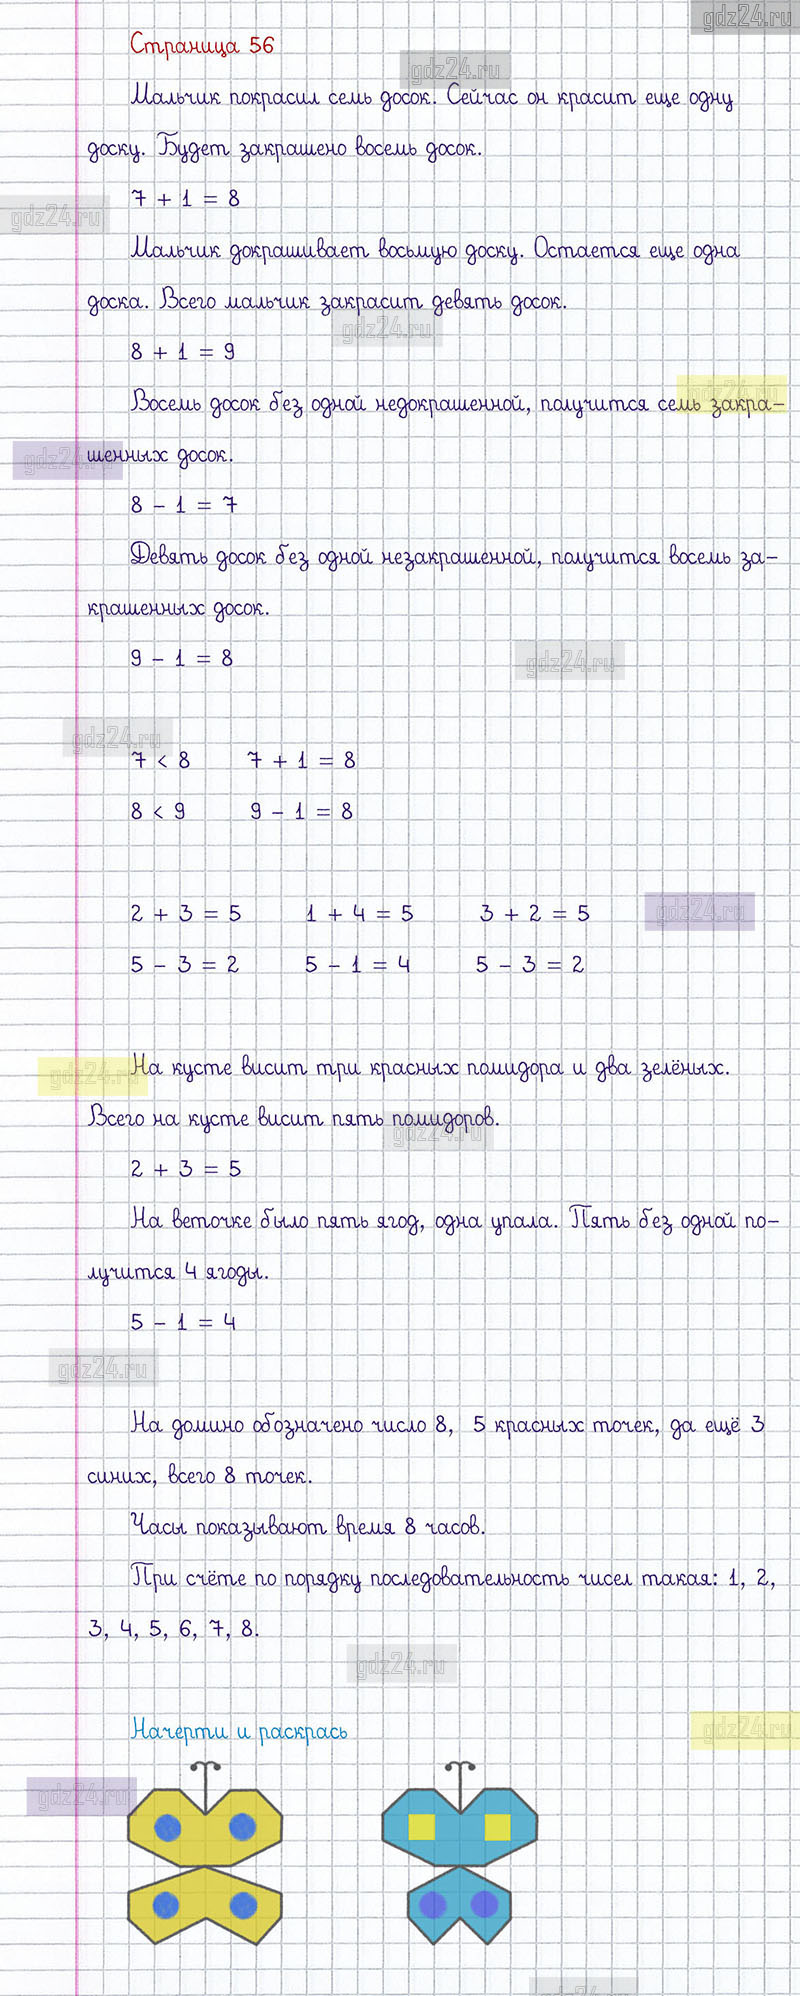 gdz24.ru
Страница 56
gdz24.ru
Мальчик покрасил семь досок. Сейчас он красит еще одну
доску. Будет закрашено восемь досок.
7 + 1 = 8
gdz24.ru
Мальчик докрашивает восьмую доску. Остается еще одна
доска. Всего мальчик закрасит девять досок.
gdz24.ru
8 + 1 = 9
gdz24.ru
Восемь досок без одной недокрашенной, получится семь закра-
шенных досок.
gdz24.ru
8 - 1 = 7
Девять досок без одной незакрашенной, получится восемь за-
крашенных досок.
9 - 1 = 8
gdz24.ru
gdz24.ru
7 < 8 7 + 1 = 8
8 < 9 9 - 1 = 8
2 + 3 = 5 1 + 4 = 5 3 + 2 = 5
gdz24.ru
5 - 3 = 2 5 - 1 = 4 5 - 3 = 2
На кусте висит три красных помидора и два зелёных.
gdz24.ru
Всего на кусте висит пять помидоров.
gdz24.ru
2 + 3 = 5
На веточке было пять ягод, одна упала. Пять без одной по-
лучится 4 ягоды.
5 - 1 = 4
gdz24.ru
На домино обозначено число 8, 5 красных точек, да ещё 3
синих, всего 8 точек.
Часы показывают время 8 часов.
При счёте по порядку последовательность чисел такая: 1, 2,
3, 4, 5, 6, 7, 8.
gdz24.ru
Начерти и раскрась
gdz24.ru
gdz24.ru
gdz24.ru